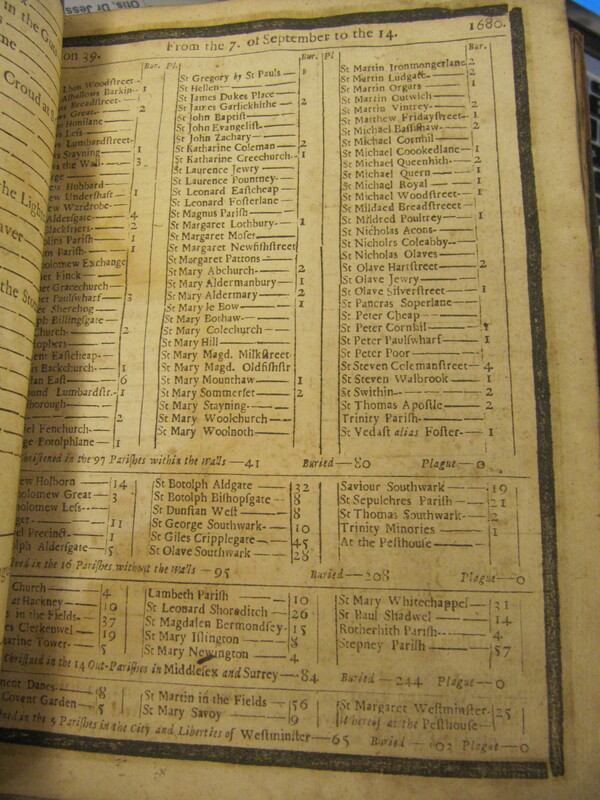 on 39. From the 7. of September to the 14. 1680.
Bur. Pl. Bur. Pl Bur.
Woodstreet
Alhallows Barkin- 1
Breadstreet-
Great- 2
Honilane
Less-
Lumbardstreet-
Stayning- 1
the Wall- 3
Hubbard
Undershaft- 1
Wardrobe-
Aldersgate- 4
Blackfriers- 2
Parish- 1
Parish- 1
Exchange
Finck
Gracechurch
Paulswharf- 3
Sherehog
Billingsgate
Church- 2
Eastcheap-
Backchurch- 1
East- 6
Lumbardstr.- 1
borough-
2
Fenchurch-
Botolphlane- 1
St Gregory by St Pauls- 1
St Hellen-
St James Dukes Place-
St James Garlickhithe- 2
St John Baptist-
St John Evangelist-
St John Zachary-
St Katharine Coleman- 2
St Katharine Creechurch- 1
St Laurence Jewry-
St Laurence Pountney-
St Leonard Eastcheap-
St Leonard Fosterlane-
St Magnus Parish-
St Margaret Lothbury- 1
St Margaret Moses-
St Margaret Newfishstreet
St Margaret Pattons-
St Mary Abchurch- 2
St Mary Aldermanbury- 1
St Mary Aldermary- 2
St Mary le Bow- 1
St Mary Bothaw-
St Mary Colechurch-
St Mary Hill-
St Mary Magd. Milkstreet
St Mary Magd. Oldfishstr
St Mary Mounthaw- 1
St Mary Sommerset- 2
St Mary Stayning-
St Mary Woolchurch-
St Mary Woolnoth-
St Martin Ironmongerlane 2
St Martin Ludgate- 2
St Martin Orgars- 1
St Martin Outwich-
St Martin Vintrey- 2
St Matthew Fridaystreet- 1
St Michael Bassishaw- 2
St Michael Cornhil-
St Michael Coookedlane- 1
St Michael Queenhith- 2
St Michael Quern- 1
St Michael Royal- 1
St Michael Woodstreet- 1
St Mildaed Breadstreeet
St Mildred Poultrey- 1
St Nicholas Acons-
St Nicholrs Coleabby-
St Nicholas Olaves-
St Olave Hartstreet- 2
St Olave Jewry-
St Olave Silverstreet- 1
St Pancras Soperlane-
St Peter Cheap-
St Peter Cornhil- 1
St Peter Paulswharf- 1
St Peter Poor-
St Steven Colemanstreet- 4
St Steven Walbrook- 1
St Swithin- 2
St Thomas Apostle- 2
Trinity Parish-
St Vedast alias Foster- 1
in the 97 Parishes within the Walls-41 Buried-80 Plague-0
Holborn- 14
Great- 3
Less-
11
Precinct- 1
Aldersgate- 5
St Botolph Aldgate- 32
St Botolph Bishopsgate- 8
St Dunstan West- 8
St George Southwark- 10
St Giles Cripplegate- 45
St Olave Southwark- 28
Saviour Southwark- 19
St Sepulchres Parish- 21
St Thomas Southwark- 2
Trinity Minories- 1
At the Pesthouse-
in the 16 Parishes without the Walls-95 Buried-208 Plague-0
Church- 4
at Hackney- 10
in the Fields- 37
Clerkenwel- 19
Tower- 5
Lambeth Parish- 10
St Leonard Shoreditch- 26
St Magdalen Bermondsey- 15
St Mary Islington- 8
St Mary Newington- 4
St Mary Whitechappel- 31
St Paul Shadwel- 14
Rotherhith Parish- 4
Stepney Parish- 57
Christned in the 14 Out-Parishes in Middlesex and Surrey-84 Buried-244 Plague-0
Danes- 8
Covent Garden- 5
St Martin in the Fields- 56
St Mary Savoy- 9
St Margaret Westminster- 25
Whereof at the Pesthouse-
in the 5 Parishes in the City and Liberties of Westminster-65 Buried- Plague-0